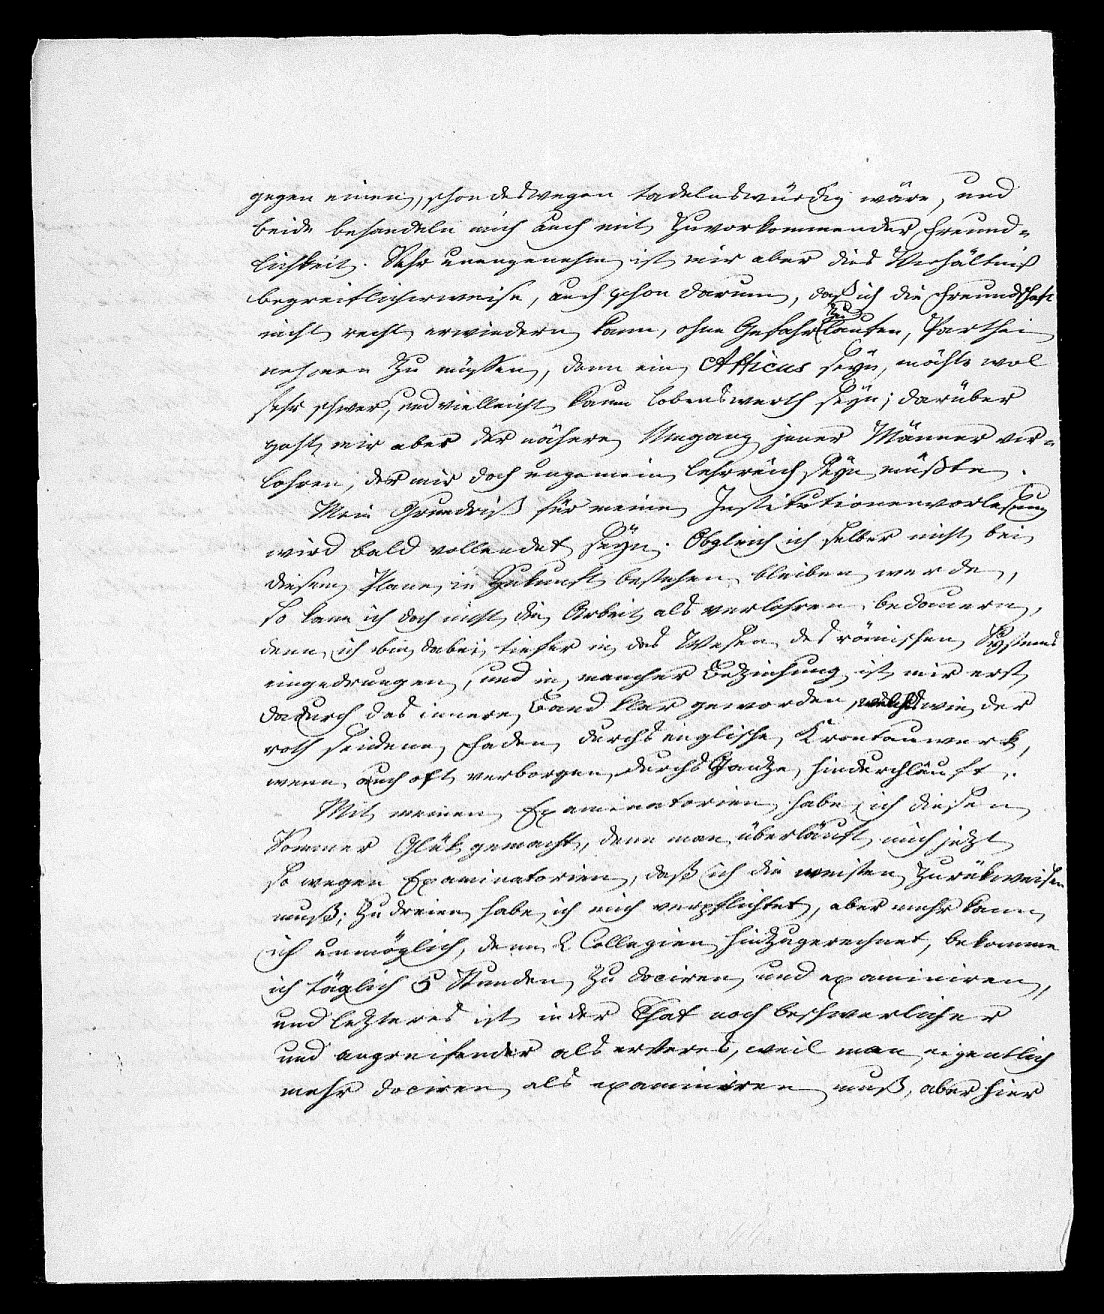 gegen einen, schon deswegen tadelnswürdig wäre, und
beide behandeln mich auch mit zuvorkommender Freund-
lichkeit. Sehr unangenehm ist mir aber dies Verhältniß
begreiflicherweise, auch schon darum, daß ich die Freundschaft
nicht recht erwiedern kann, ohne Gefahr zu laufen, Parthei
nehmen zu müssen, denn ein Atticus seyn, möchte wol
sehr schwer, und vielleicht kaum lobenswerth seyn; darüber
geht mir aber der nähere Umgang jener Männer ver-
lohren, der mir doch ungemein lehrreich seyn müßte.
Mein Grundriß für meine Institutionenvorlesung
wird bald vollendet seyn. Obgleich ich selber nicht bei
diesem Plane in Zukunft bestehen bleiben werde,
so kann ich doch nicht die Arbeit als verlohren bedauern,
denn ich bin dabei tiefer in das Wesen des römischen Systems
eingedrungen, und in mancher Beziehung ist mir erst
dadurch das innere Band klar geworden, welches wie der
roth seidene Faden durchs englische Krontauwerk,
wenn auch oft verborgen, durchs Ganze hindurchläuft.
Mit meinen Examinatorien habe ich diesen
Sommer Glük gemacht, denn man überläuft mich jetzt
so wegen Examinatorien, daß ich die meisten zurükweisen
muß; zu dreien habe ich mich verpflichtet, aber mehr kann
ich unmöglich, denn 2 Collegien hinzugerechnet, bekomme
ich täglich 5 Stunden zu dociren und examiniren,
und letzteres ist in der That noch beschwerlicher
und angreifender als ersteres, weil man eigentlich
mehr dociren als examiniren muß, aber hier